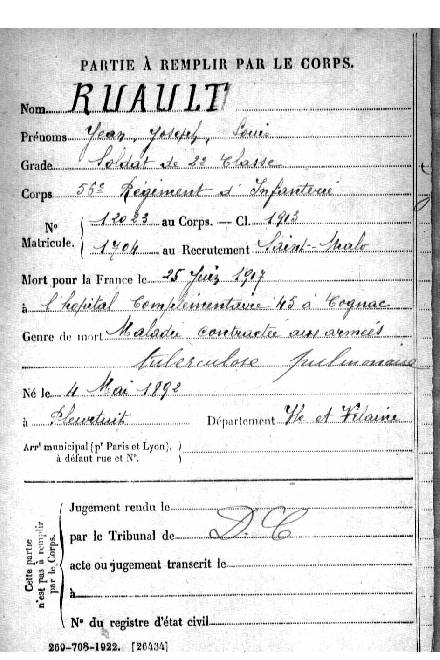 PARTIE À REMPLIR PAR LE CORPS.
Nom RUAULT
Prénoms Jean, Joseph, Louis
Grade Soldat de 2e Classe
Corps 56e Régiment d'Infanterie
N° Matricule. 12023 au Corps. — Cl. 1913
1704 au Recrutement Saint-Malo
Mort pour la France le 25 Juin 1917
à l'hopital Complémentaire 45 à Cognac
Genre de mort Maladie contractée aux armées
tuberculose pulmonaire
Né le 4 Mai 1892
à Pleurtuit Département Ille et Vilaine
Arrt municipal (pr Paris et Lyon),
à défaut rue et N°.
Cette partie n'est pas à remplir par le Corps.
Jugement rendu le
par le Tribunal de D. C
acte ou jugement transcrit le
à
N° du registre d'état civil
269-708-1922. [26434]